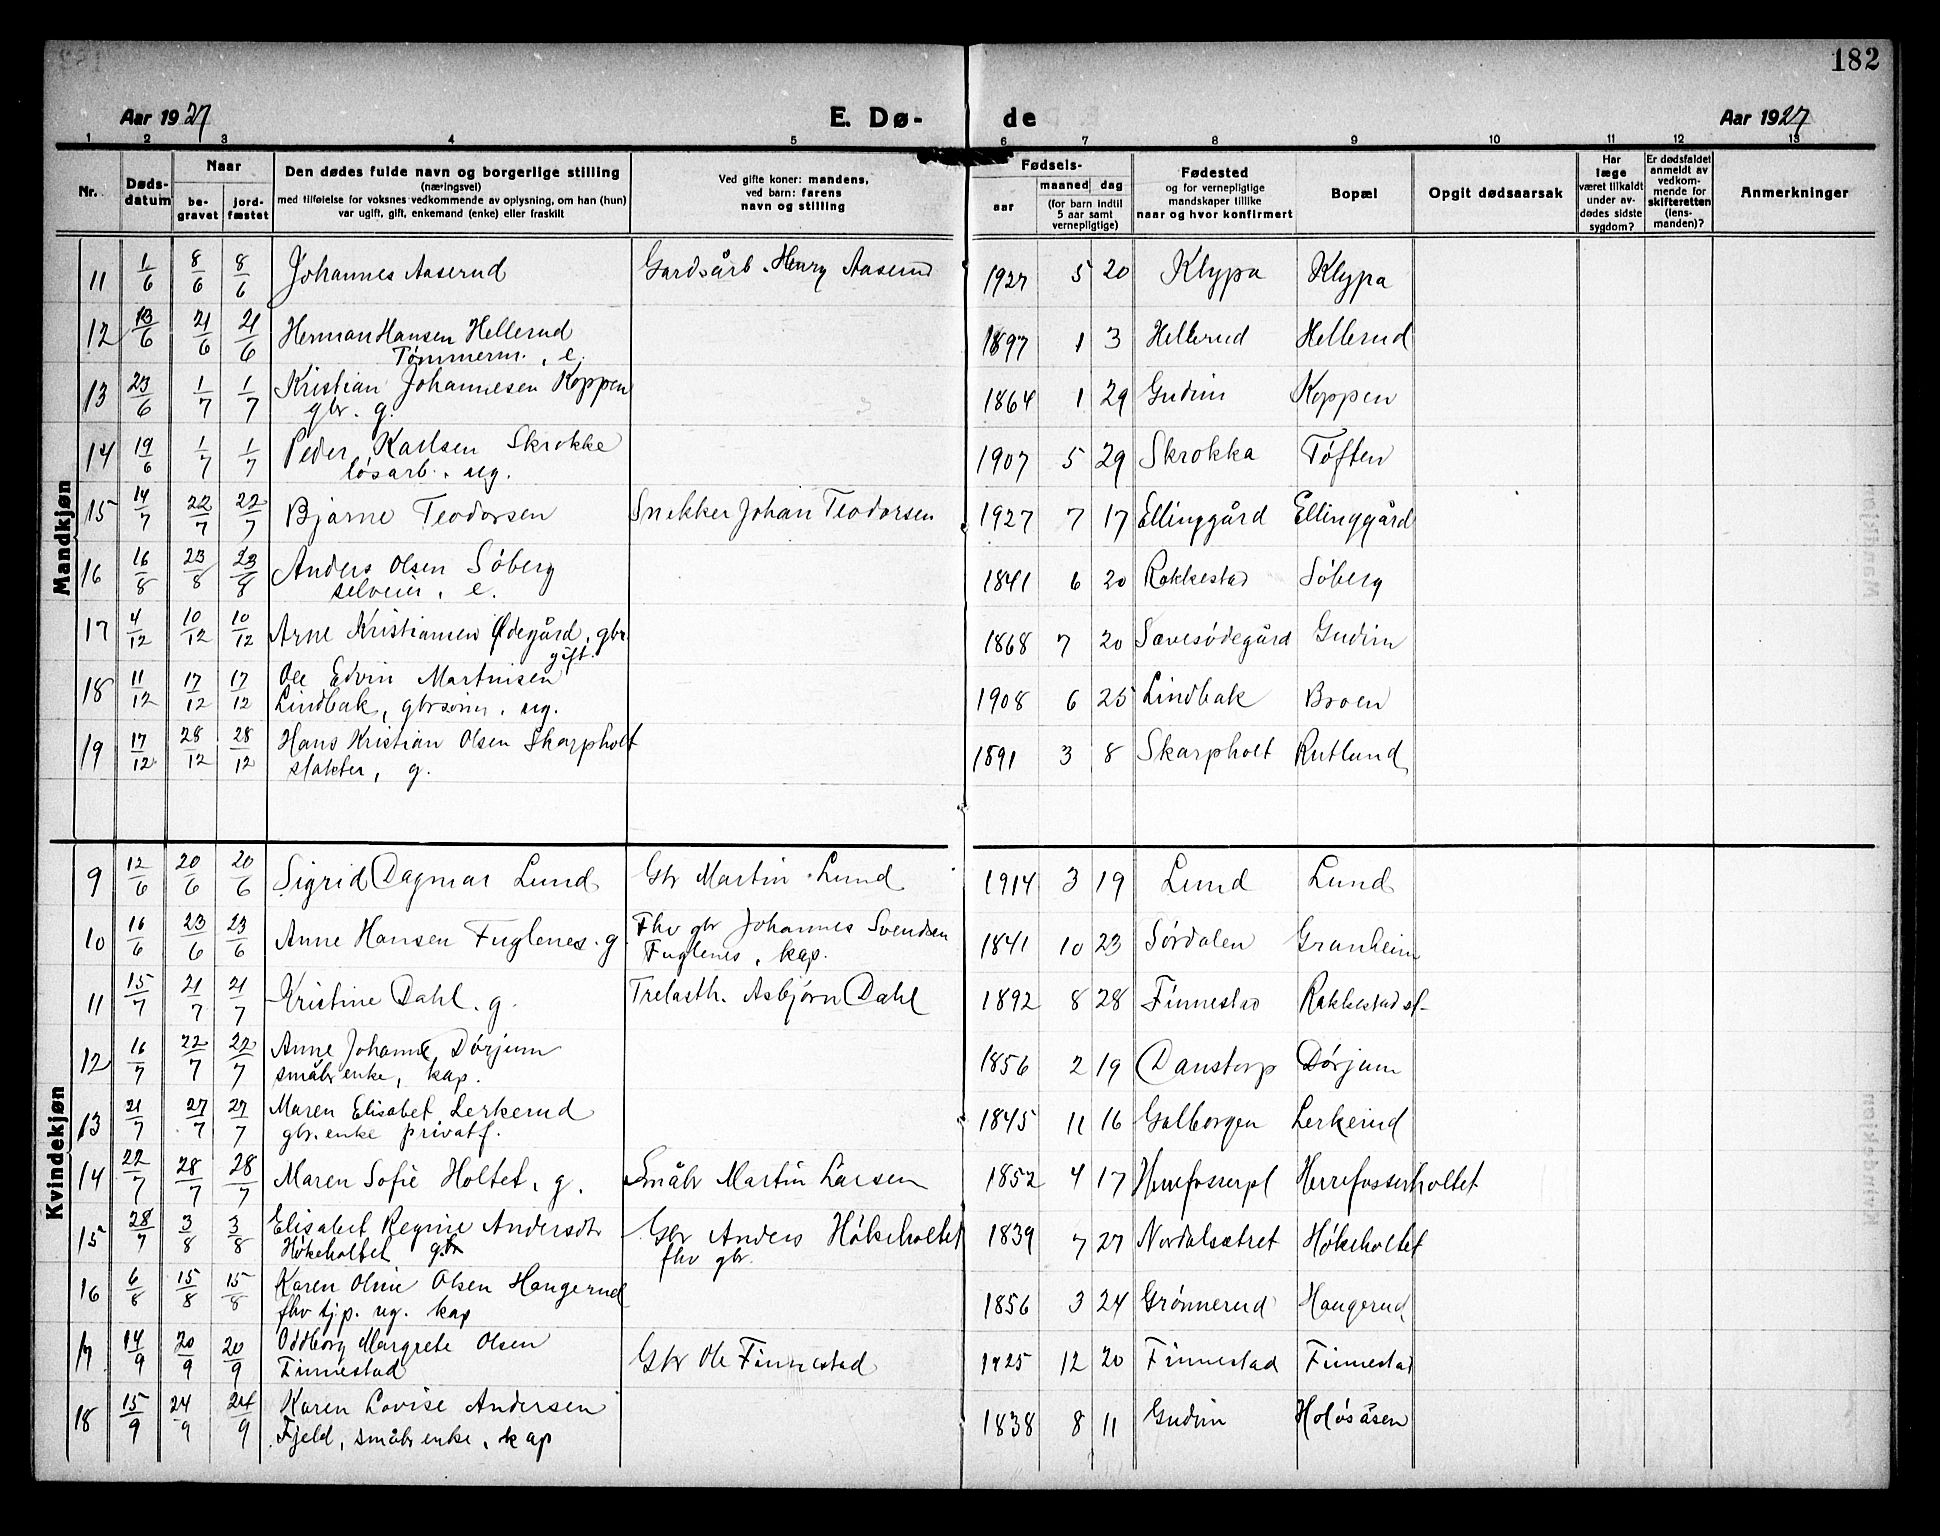 182
Aar 1927 E. Dø- de Aar 1927
1 2 3 4 5 6 7 8 9 10 11 12 13
Nr.
Døds-
datum
Naar
be-
gravet
jord-
fæstet
Den dødes fulde navn og borgerlige stilling
(næringsvei)
med tilføielse for voksnes vedkommende av oplysning, om han (hun)
var ugift, gift, enkemand (enke) eller fraskilt
Ved gifte koner: mandens,
ved barn: farens
navn og stilling
Fødsels-
aar
maaned dag
(for barn indtil
5 aar samt
vernepligtige)
Fødested
og for vernepligtige
mandskaper tillike
naar og hvor konfirmert
Bopæl
Opgit dødsaarsak
Har
læge
været tilkaldt
under av-
dødes sidste
sygdom?
Er dødsfaldet
anmeldt av
vedkom-
mende for
skifteretten
(lens-
manden)?
Anmerkninger
Mandkjøn
11 1/6 8/6 8/6 Johannes Aaserud Gardsårb. Henry Aaserud 1927 5 20 Klypa Klypa
12 13/6 21/6 21/6 Herman Hansen Hellerud 1897 1 3 Hellerud Hellerud
Tømmerm., e.
13 23/6 1/7 1/7 Kristian Johannesen Koppen 1864 1 29 Gudim Koppen
gbr. g.
14 19/6 1/7 1/7 Peder Karlsen Skrokke 1907 5 29 Skrokka Tøften
løsarb. ug.
15 14/7 22/7 22/7 Bjarne Teodorsen Snekker Johan Teodorsen 1927 7 17 Ellinggård Ellinggård
16 16/8 23/8 23/8 Anders Olsen Søberg 1841 6 20 Rakkestad Søberg
selveier, e.
17 4/12 10/12 10/12 Arne Kristiansen Ødegård, gbr. 1868 7 20 Sævesødegård Gudim
gift.
18 11/12 17/12 17/12 Ole Edvin Martinisen 1908 6 25 Lindbak Broen
Lindbak, gbrsønn, ug.
19 17/12 28/12 28/12 Hans Kristian Olsen Skarpholt 1891 3 8 Skarpholt Rutlund
slakter, g.
Kvindekjøn
9 12/6 20/6 20/6 Sigrid Dagmar Lund Gbr Martin Lund 1914 3 19 Lund Lund
10 16/6 23/6 23/6 Anne Hansen Fuglenes. g. Fhv gbr Johannes Svendsen 1841 10 23 Sørdalen Granheim
Fuglenes, kap.
11 15/7 21/7 21/7 Kristine Dahl. g. Trelasth. Asbjørn Dahl 1892 8 28 Finnestad Rakkestad st.
12 16/7 22/7 22/7 Anne Johanne Dørjum 1856 2 19 Danstorp Dørjum
småbr enke, kap.
13 21/7 27/7 27/7 Maren Elisabet Lerkerud 1845 11 16 Galborgen Lerkerud
gbr. enke privatf.
14 22/7 28/7 28/7 Maren Sofie Holtet, g. Småbr Martin Larsen 1852 4 17 Herrefosserpl Herrefosserholtet
15 28/7 3/8 3/8 Elisabet Regine Andersdtr Gbr Anders Høkeholtet 1839 7 27 Nordalsætret Høkeholtet
Høkeholtet fhv gbr.
16 6/8 15/8 15/8 Karen Oline Olsen Haugerud 1856 3 24 Grønnerud Haugerud
fhv tjp. ug. kap
17 14/9 20/9 20/9 Oddborg Margrete Olsen Gbr Ole Finnestad 1925 12 20 Finnestad Finnestad
Finnestad
18 15/9 24/9 24/9 Karen Lovise Andersen 1838 8 11 Gudim Holøsåsen
Fjeld, småbr enke, kap